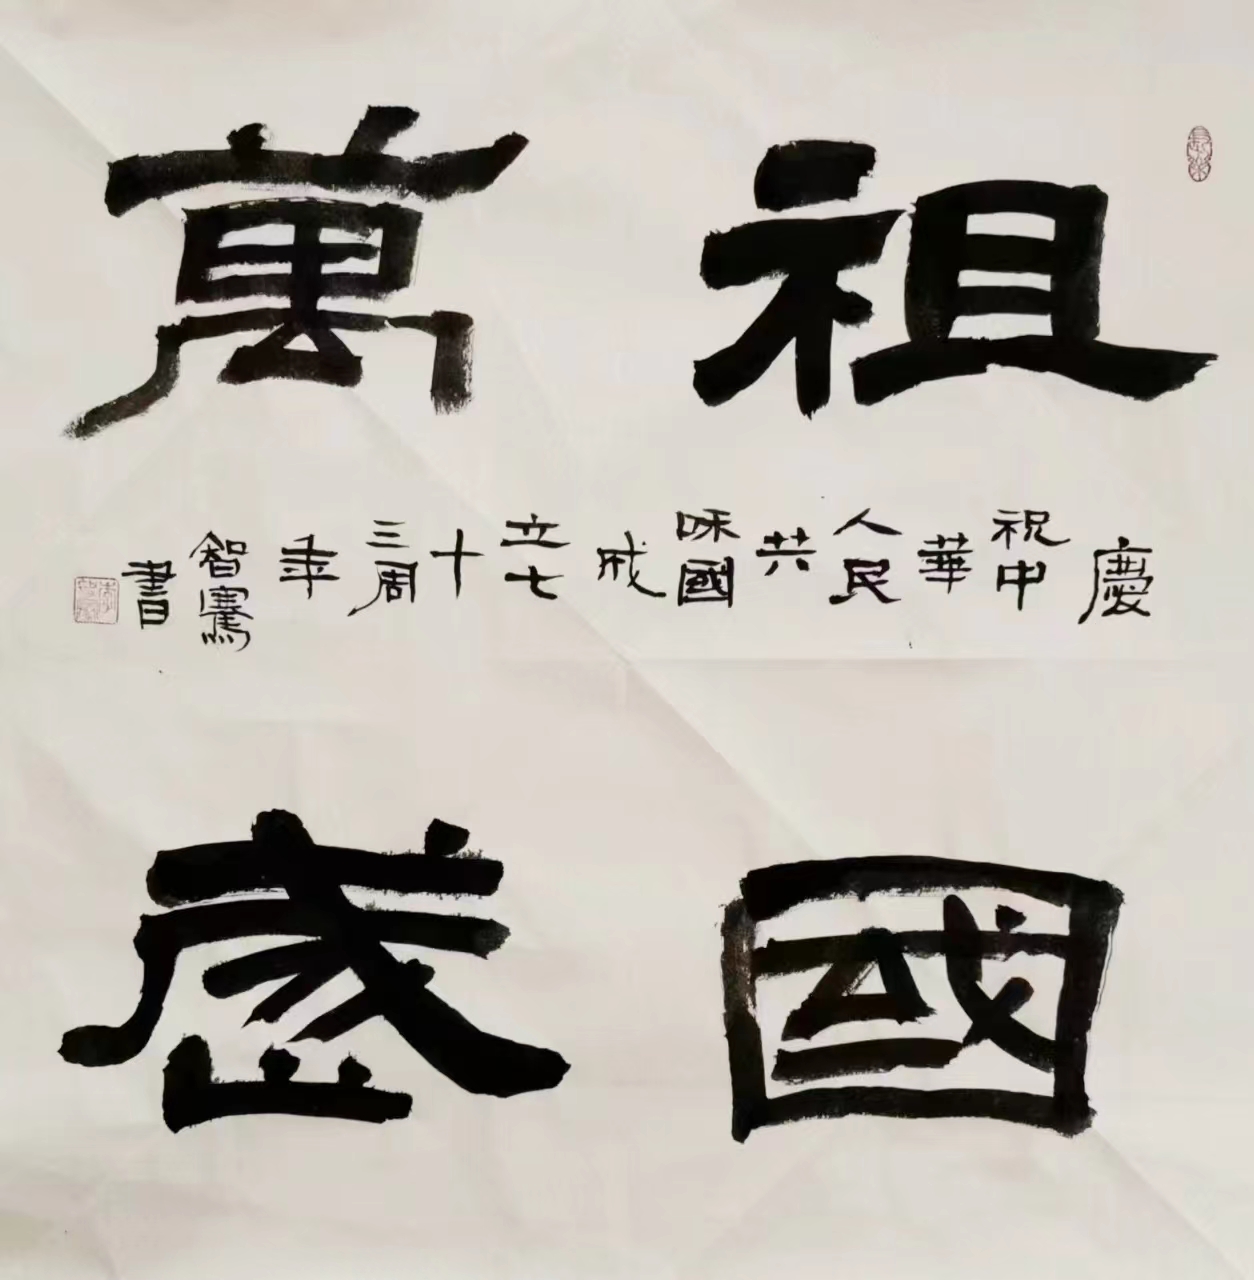 祖國
萬歲
慶祝中華人民共咊國成立七十三周年
智騫書